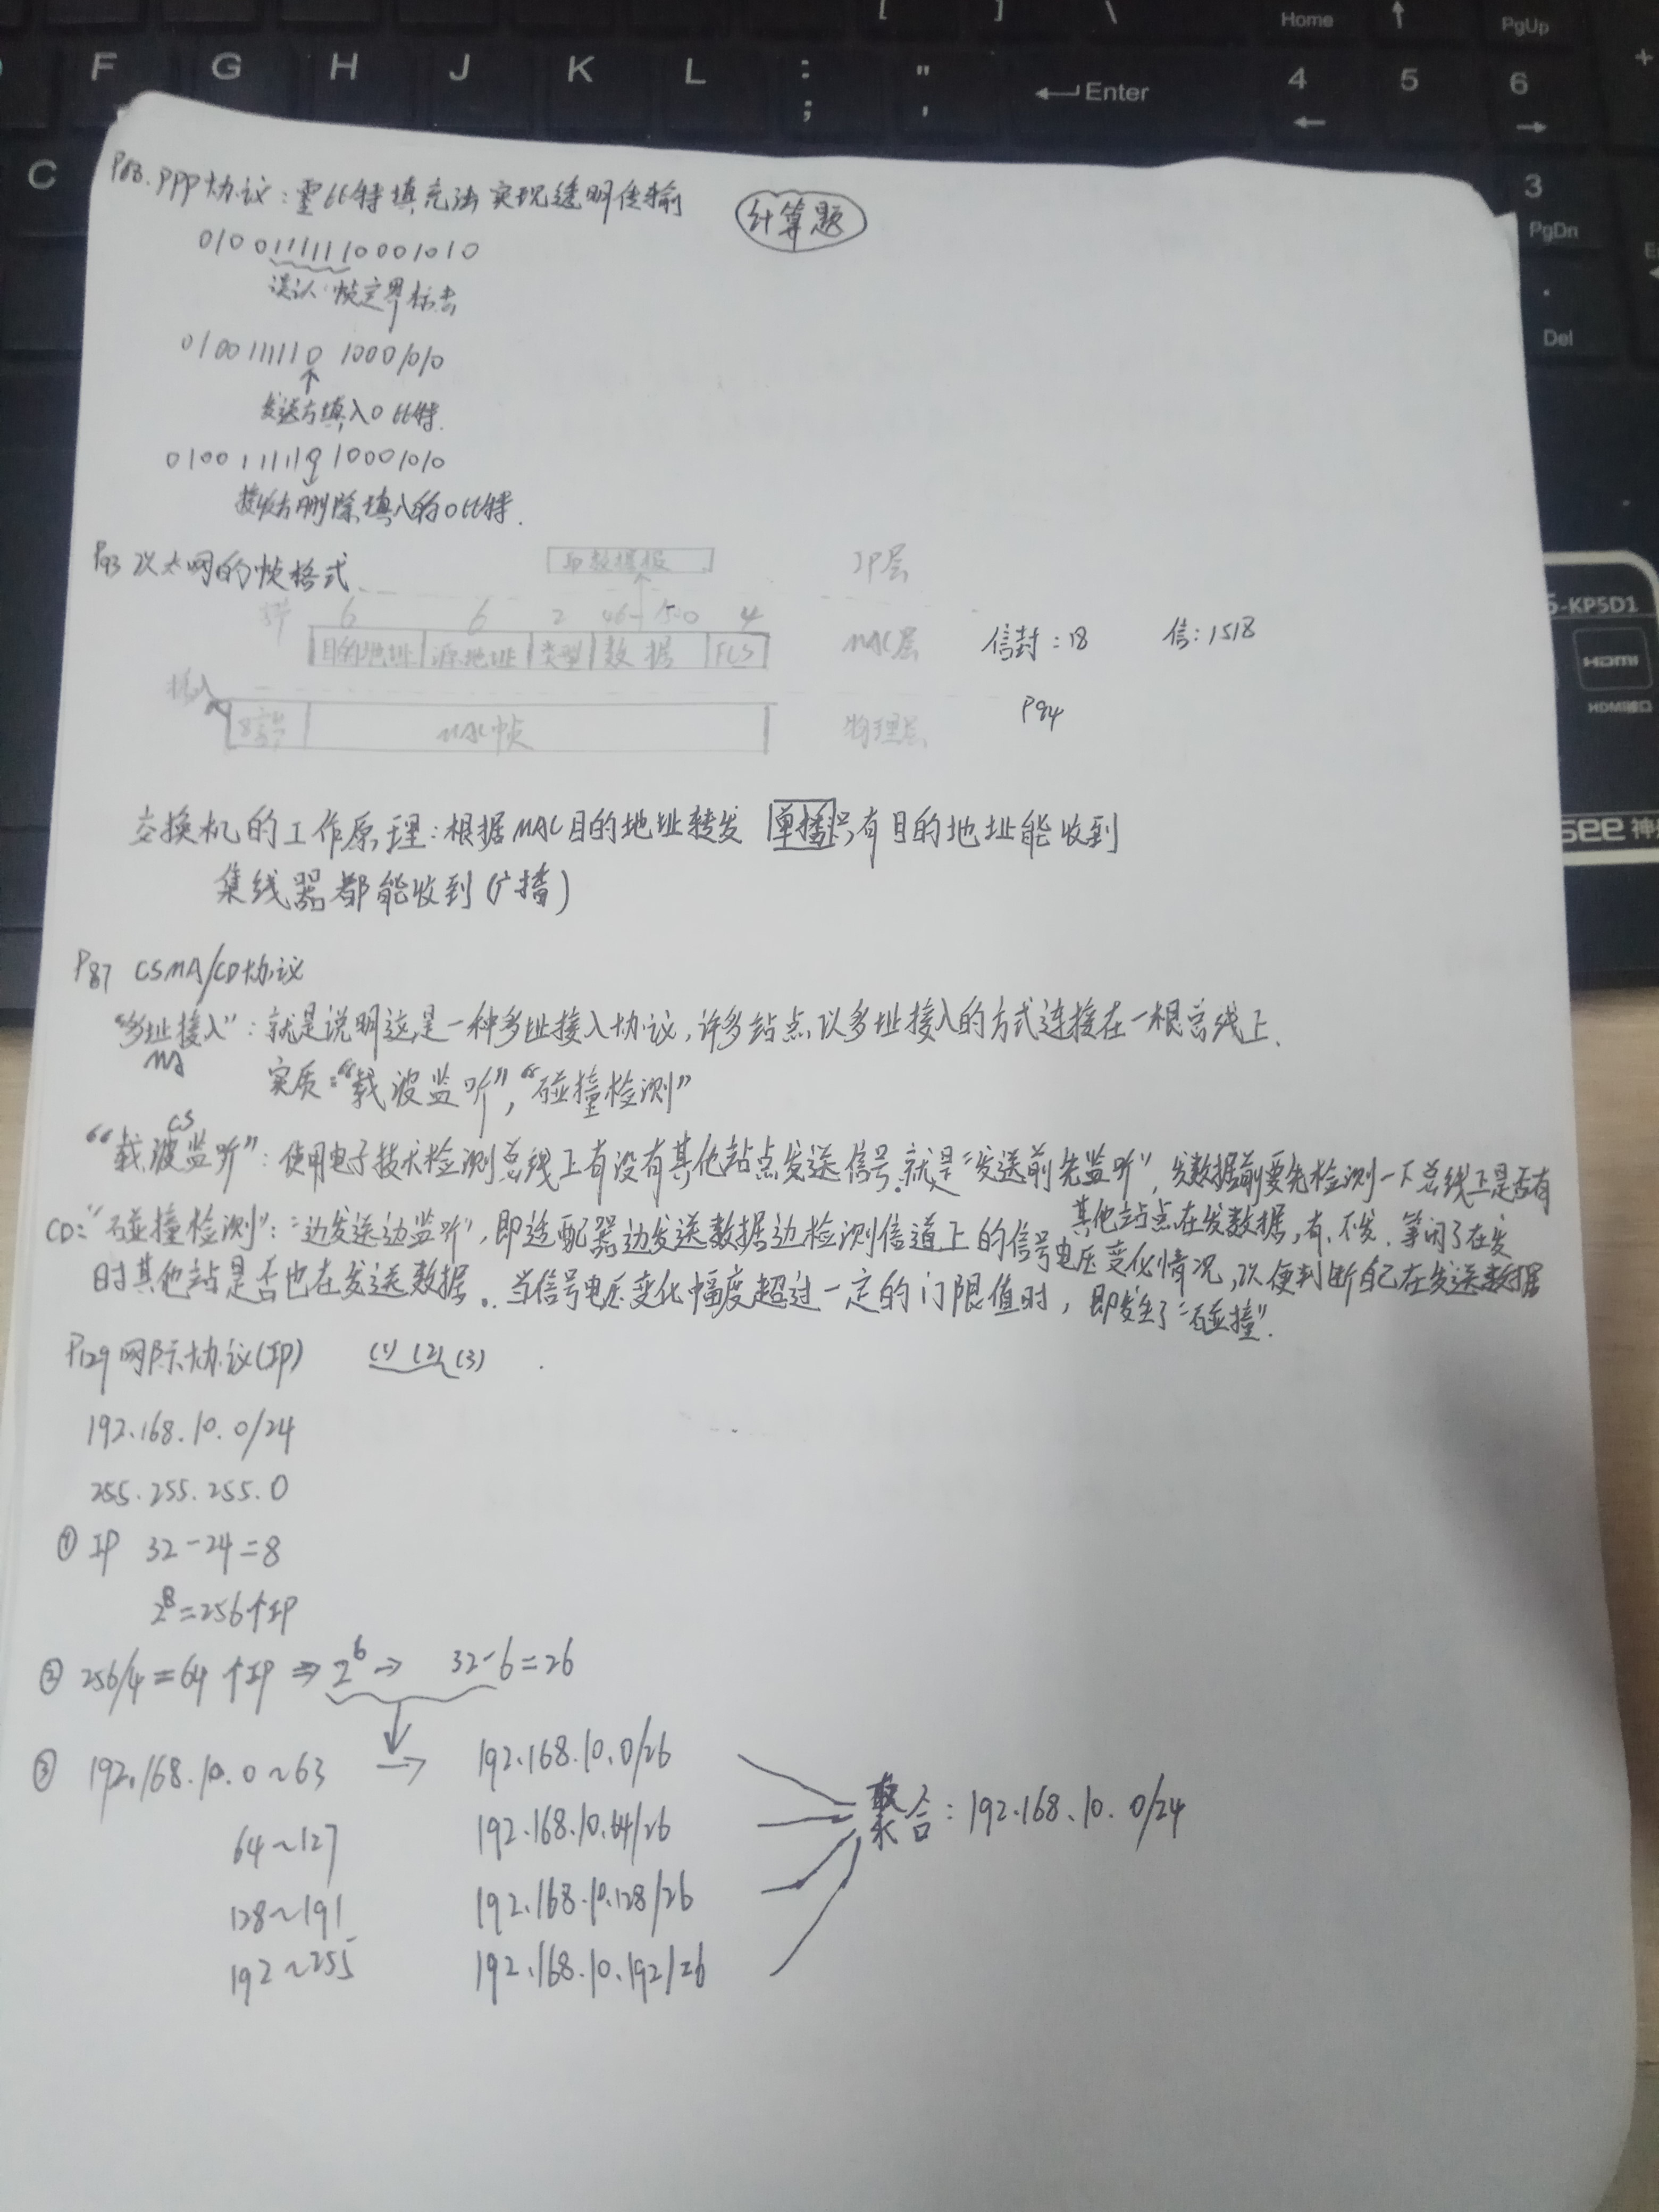 [ ] \ Home ↑ PgUp
F G H J K L : ; " , ←Enter 4 ← 5 6 → +
C 3 PgDn
. Del
P83. PPP协议：零比特填充法实现透明传输 计算题
01001111110001010
误认：帧定界标志
010011111010001010
发送方填入0比特.
010011111010001010
接收方删除填入的0比特.
P93 以太网的帧格式
IP数据报 IP层
6 6 2 46~1500 4
目的地址 源地址 类型 数据 FCS MAC层 信封：18 信：1518
插入 P94
8字节 MAC帧 物理层
交换机的工作原理：根据MAC目的地址转发 单播只有目的地址能收到
集线器都能收到（广播）
P87 CSMA/CD协议
“多址接入”：就是说明这是一种多址接入协议，许多站点以多址接入的方式连接在一根总线上.
MA
实质：“载波监听”，“碰撞检测”
CS
“载波监听”：使用电子技术检测总线上有没有其他站点发送信号.就是“发送前先监听”，发数据前要先检测一下总线上是否有
其他站点在发数据，有，不发.等闲了在发
CD：“碰撞检测”：“边发送边监听”，即适配器边发送数据边检测信道上的信号电压变化情况，以便判断自己在发送数据
时其他站是否也在发送数据.当信号电压变化幅度超过一定的门限值时，即发生了“碰撞”.
P129 网际协议(IP) (1) (2) (3)
192.168.10.0/24
255.255.255.0
① IP 32-24=8
2⁸=256个IP
② 256/4=64个IP ⇒ 2⁶ → 32-6=26
③ 192.168.10.0~63 → 192.168.10.0/26
64~127 192.168.10.64/26 聚合：192.168.10.0/24
128~191 192.168.10.128/26
192~255 192.168.10.192/26
-KP5D1
HDMI
HDMI接口
see 神